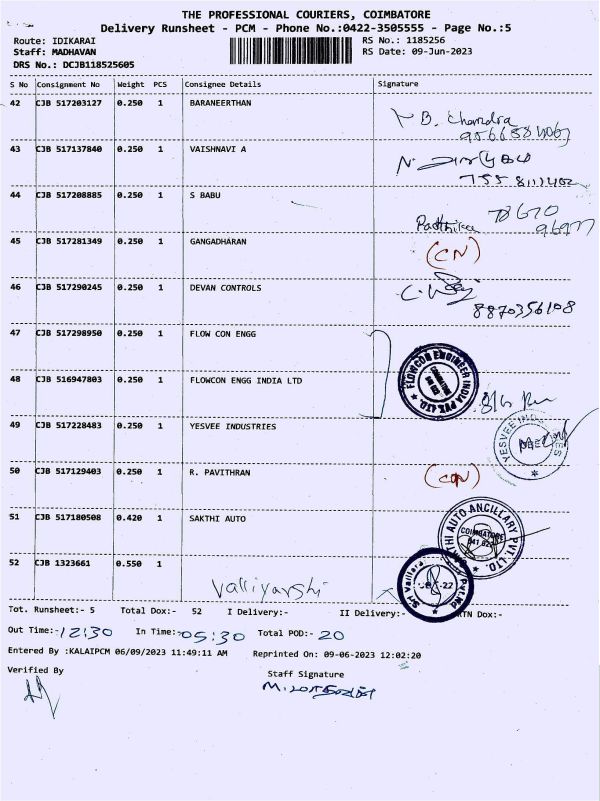 THE PROFESSIONAL COURIERS, COIMBATORE
Delivery Runsheet - PCM - Phone No.:0422-3505555 - Page No.:5
Route: IDIKARAI RS No.: 1185256
Staff: MADHAVAN RS Date: 09-Jun-2023
DRS No.: DCJB118525605
S No Consignment No Weight PCS Consignee Details Signature
42 CJB 517203127 0.250 1 BARANEERTHAN
B. Chandra
43 CJB 517137840 0.250 1 VAISHNAVI A
44 CJB 517208885 0.250 1 S BABU
45 CJB 517281349 0.250 1 GANGADHARAN (CN)
46 CJB 517290245 0.250 1 DEVAN CONTROLS
8870356108
47 CJB 517298950 0.250 1 FLOW CON ENGG
FLOWCON ENGINEER INDIA PVT. LTD.
48 CJB 516947803 0.250 1 FLOWCON ENGG INDIA LTD
49 CJB 517228483 0.250 1 YESVEE INDUSTRIES
50 CJB 517129403 0.250 1 R. PAVITHRAN
51 CJB 517180508 0.420 1 SAKTHI AUTO
AUTO ANCILLARY PVT. LTD.
COIMBATORE
52 CJB 1323661 0.550 1
Tot. Runsheet:- 5 Total Dox:- 52 I Delivery:- II Delivery:- Dox:-
Out Time:- 12:30 In Time:- 05:30 Total POD:- 20
Entered By :KALAIPCM 06/09/2023 11:49:11 AM Reprinted On: 09-06-2023 12:02:20
Verified By Staff Signature